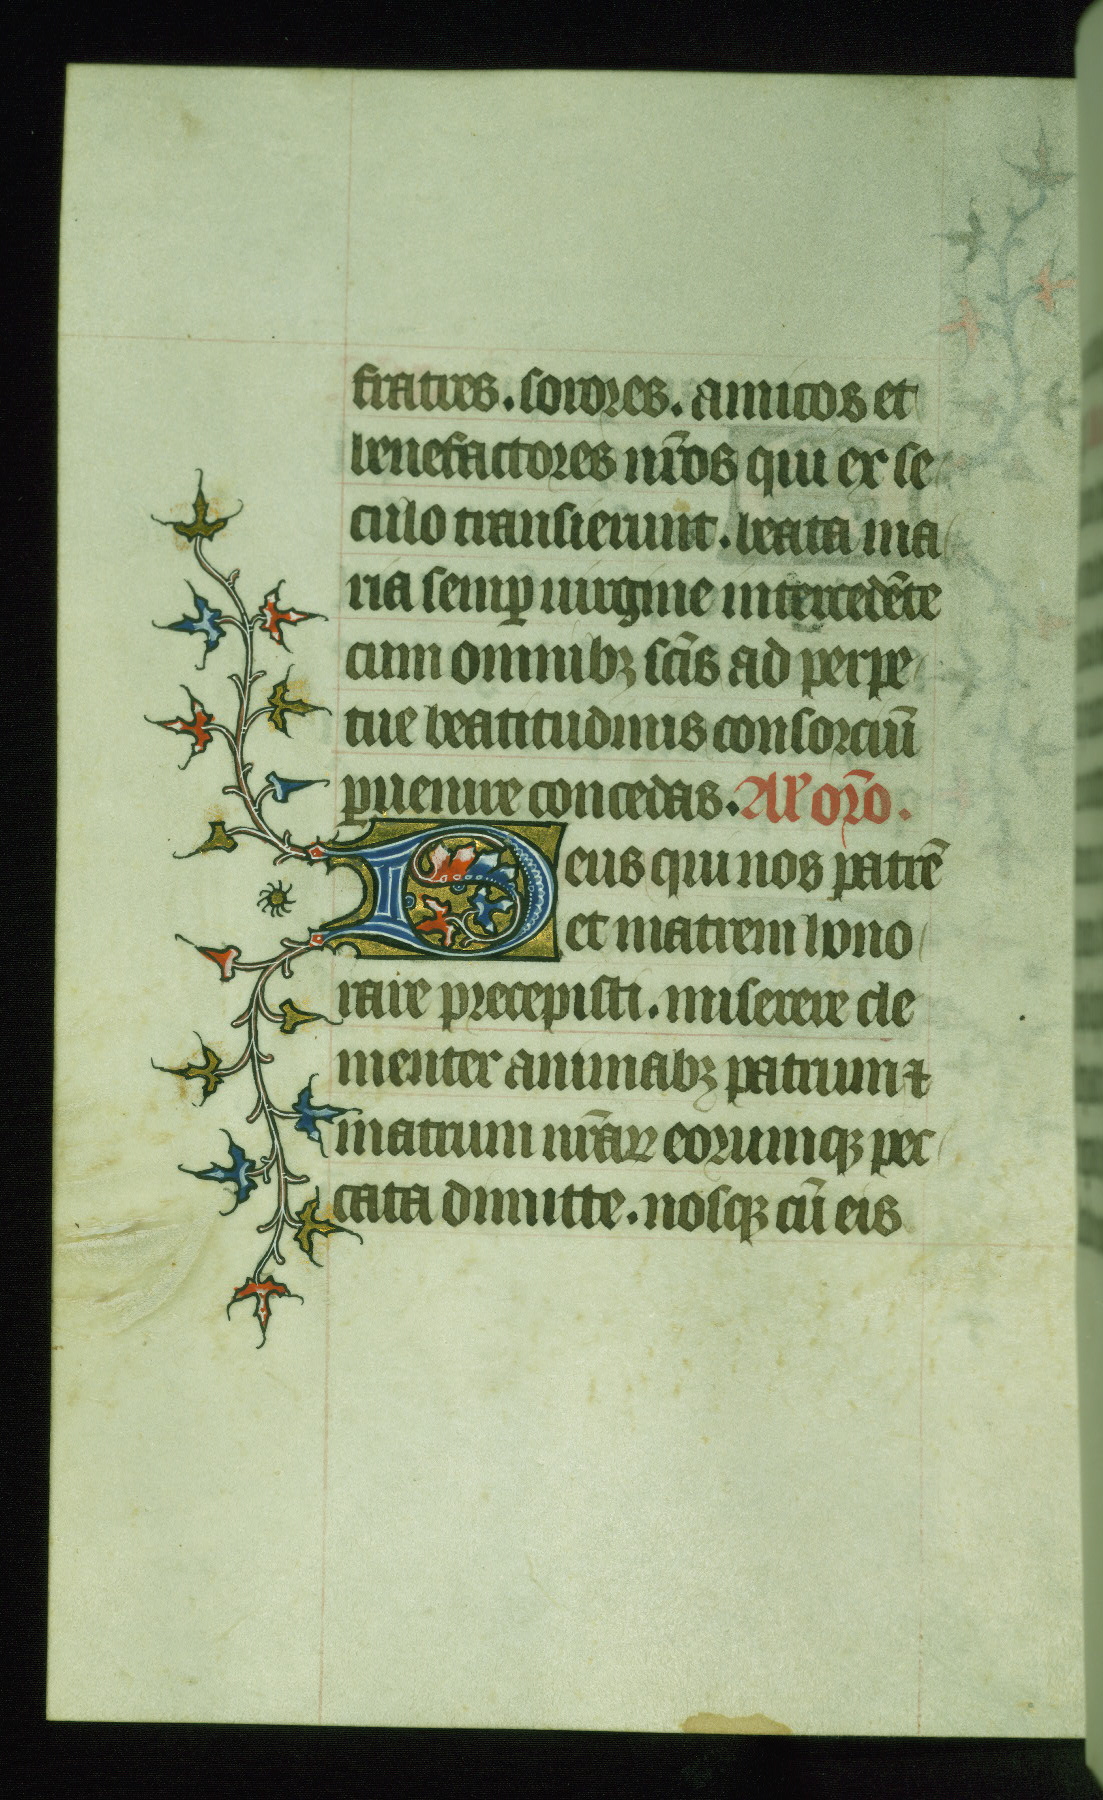 fratres. sorores. amicos et
benefactores nr̄os qui ex se
culo transierunt. beata ma
ria semꝑ uirgine intercedēte
cum omnibꝫ scīs ad perpe
tue beatitudinis consorciū
ꝑuenire concedas. Al' or̄o.
Deus qui nos patrē
et matrem hono
rare precepisti. miserere cle
menter animabꝫ patrum ⁊
matrum nr̄aꝝ eorumqꝫ pec
cata dimitte. nosqꝫ cū eis